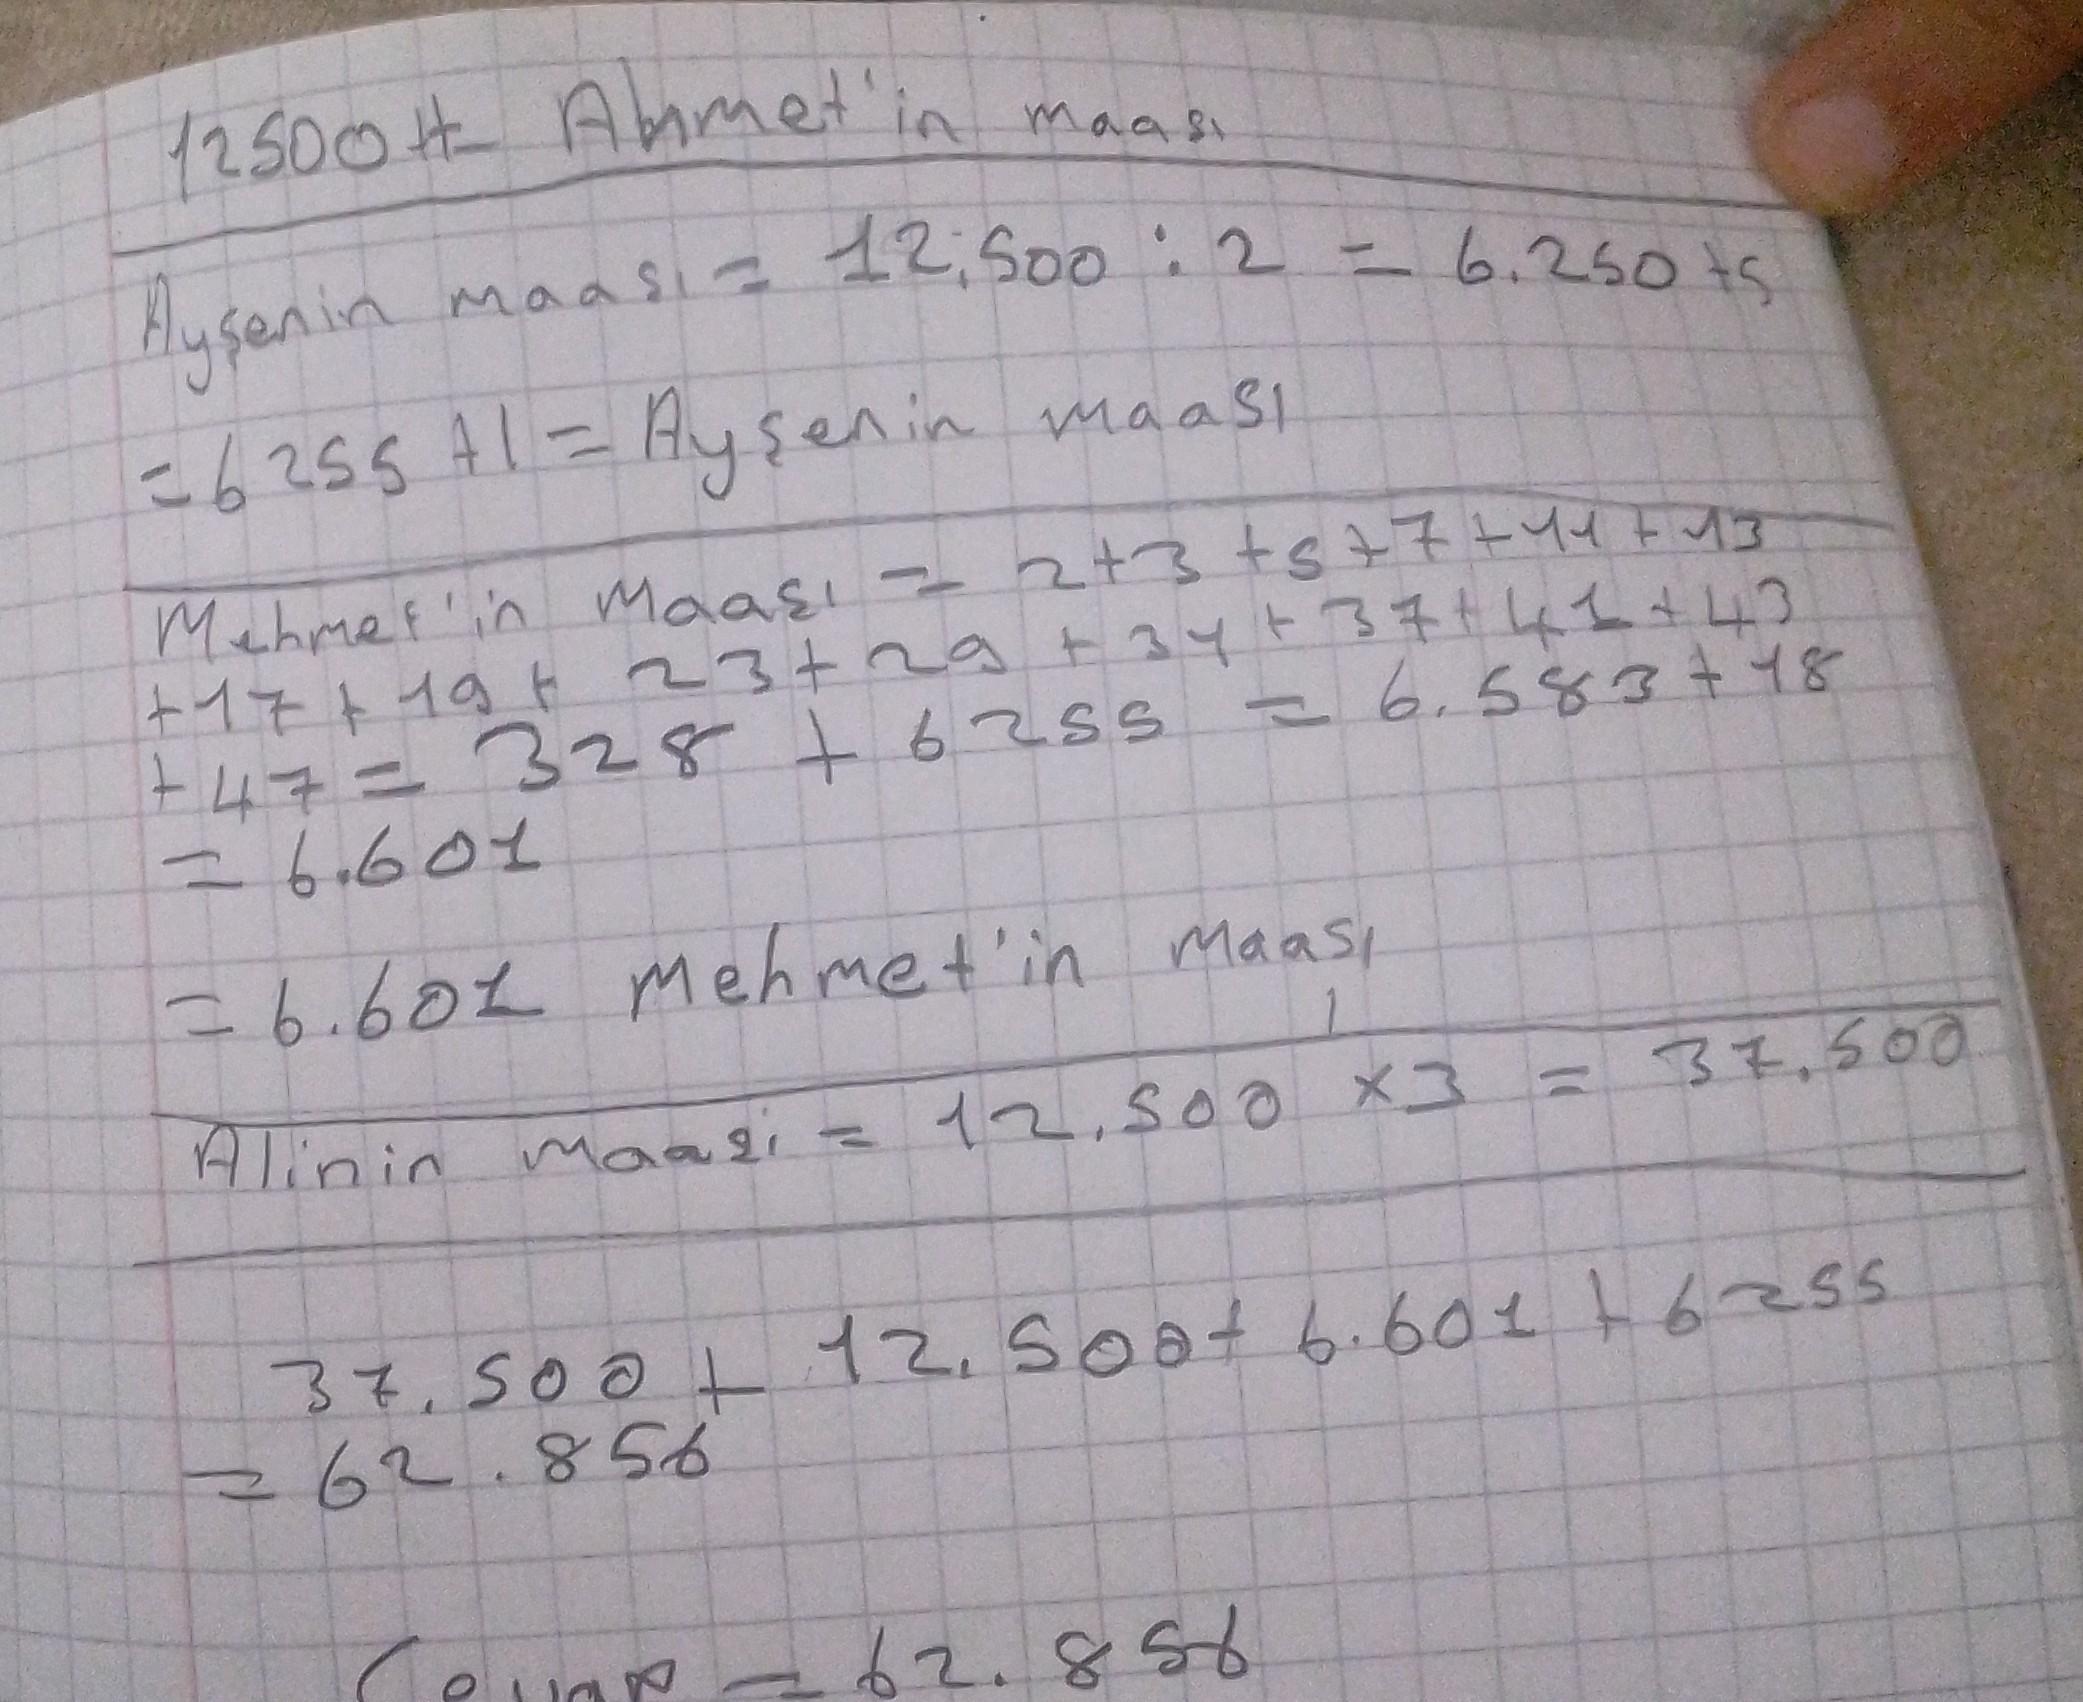 12500 tl Ahmet'in maası
Ayşenin maası = 12.500 : 2 = 6.250 +5
= 6255 tl = Ayşenin maası
Mehmet'in Maaşı = 2+3+5+7+11+13
+17+19+23+29+31+37+41+43
+47= 328 + 6255 = 6.583+18
= 6.601
= 6.601 Mehmet'in Maası
Alinin maaşi = 12.500 x3 = 37.500
37.500 + 12.500+ 6.601 + 6255
= 62.856
Cevap = 62.856